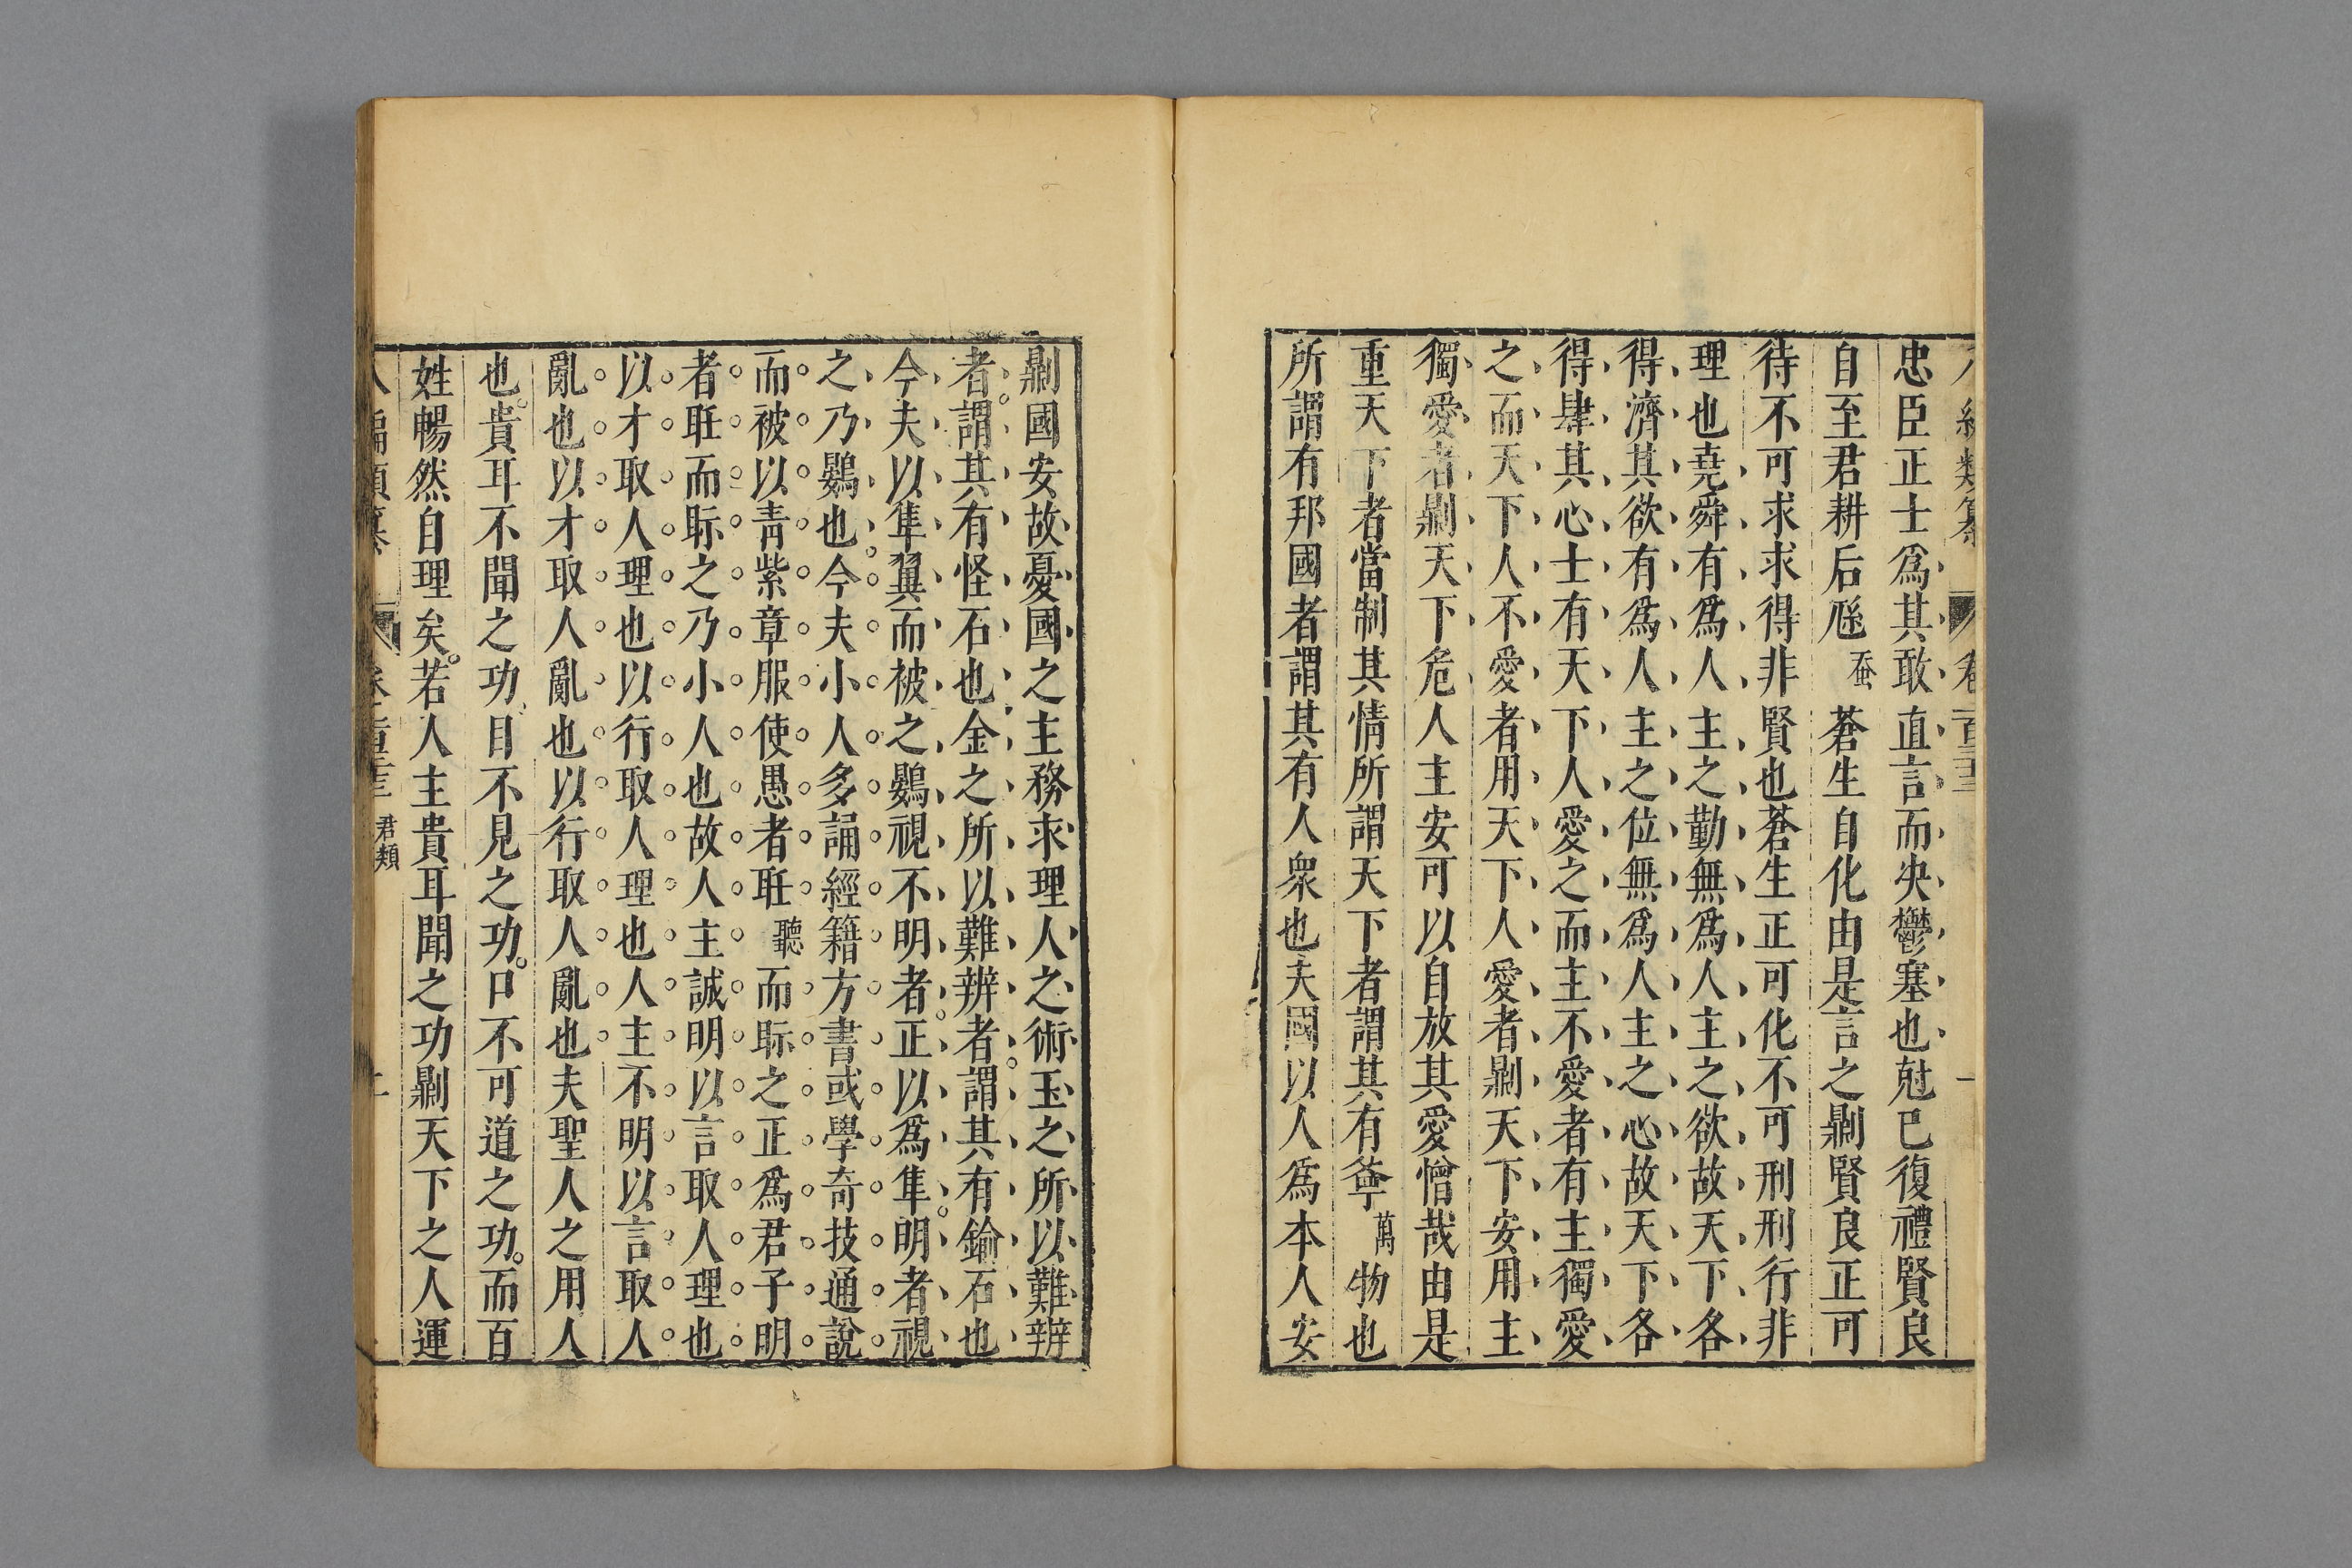 忠臣正士爲其敢直言而决鬱塞也尅已復禮賢良
自至君耕后蚕蒼生自化由是言之劓賢良正可
待不可求求得非賢也蒼生正可化不可刑刑行非
理也堯舜有爲人主之勤無爲人主之欲故天下各
得濟其欲有爲人主之位無爲人主之心故天下各
得肆其心士有天下人愛之而主不愛者有主獨愛
之而天下人不愛者用天下人愛者劓天下安用主
獨愛者劓天下危人主安可以自放其愛憎哉由是
重天下者當制其情所謂天下者謂其有萬物也
所謂有邦國者謂其有人衆也夫國以人爲本人安
劓國安故憂國之主務求理人之術玉之所以難辨
者謂其有怪石也金之所以難辨者謂其有鍮石也
今夫以隼翼而被之鷃視不明者正以爲隼明者視
之乃鷃也今夫小人多誦經籍方書或學奇技通說
而被以靑紫章服使愚者聽而眎之正爲君子明
者聑而眎之乃小人也故人主誠明以言取人理也
以才取人理也以行取人理也人主不明以言取人
亂也以才取人亂也以行取人亂也夫聖人之用人
也貴耳不聞之功目不見之功口不可道之功而百
姓暢然自理矣若人主貴耳聞之功劓天下之人運
君類